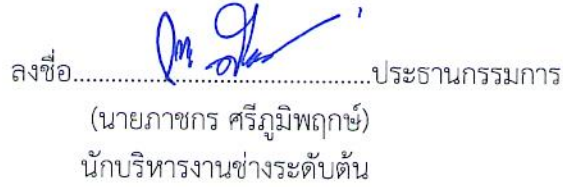 ลงชื่อ..........................................ประธานกรรมการ
(นายภาชกร ศรีภูมิพฤกษ์)
นักบริหารงานช่างระดับต้น